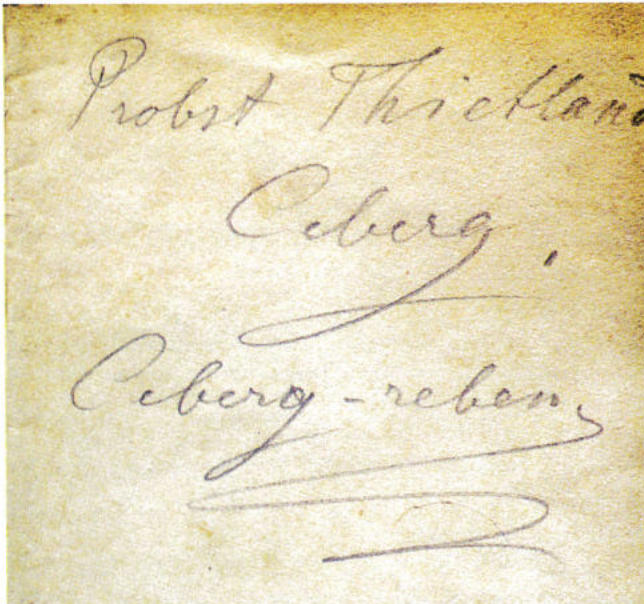 Probst Thietland
Ceberg.
Ceberg-reben.